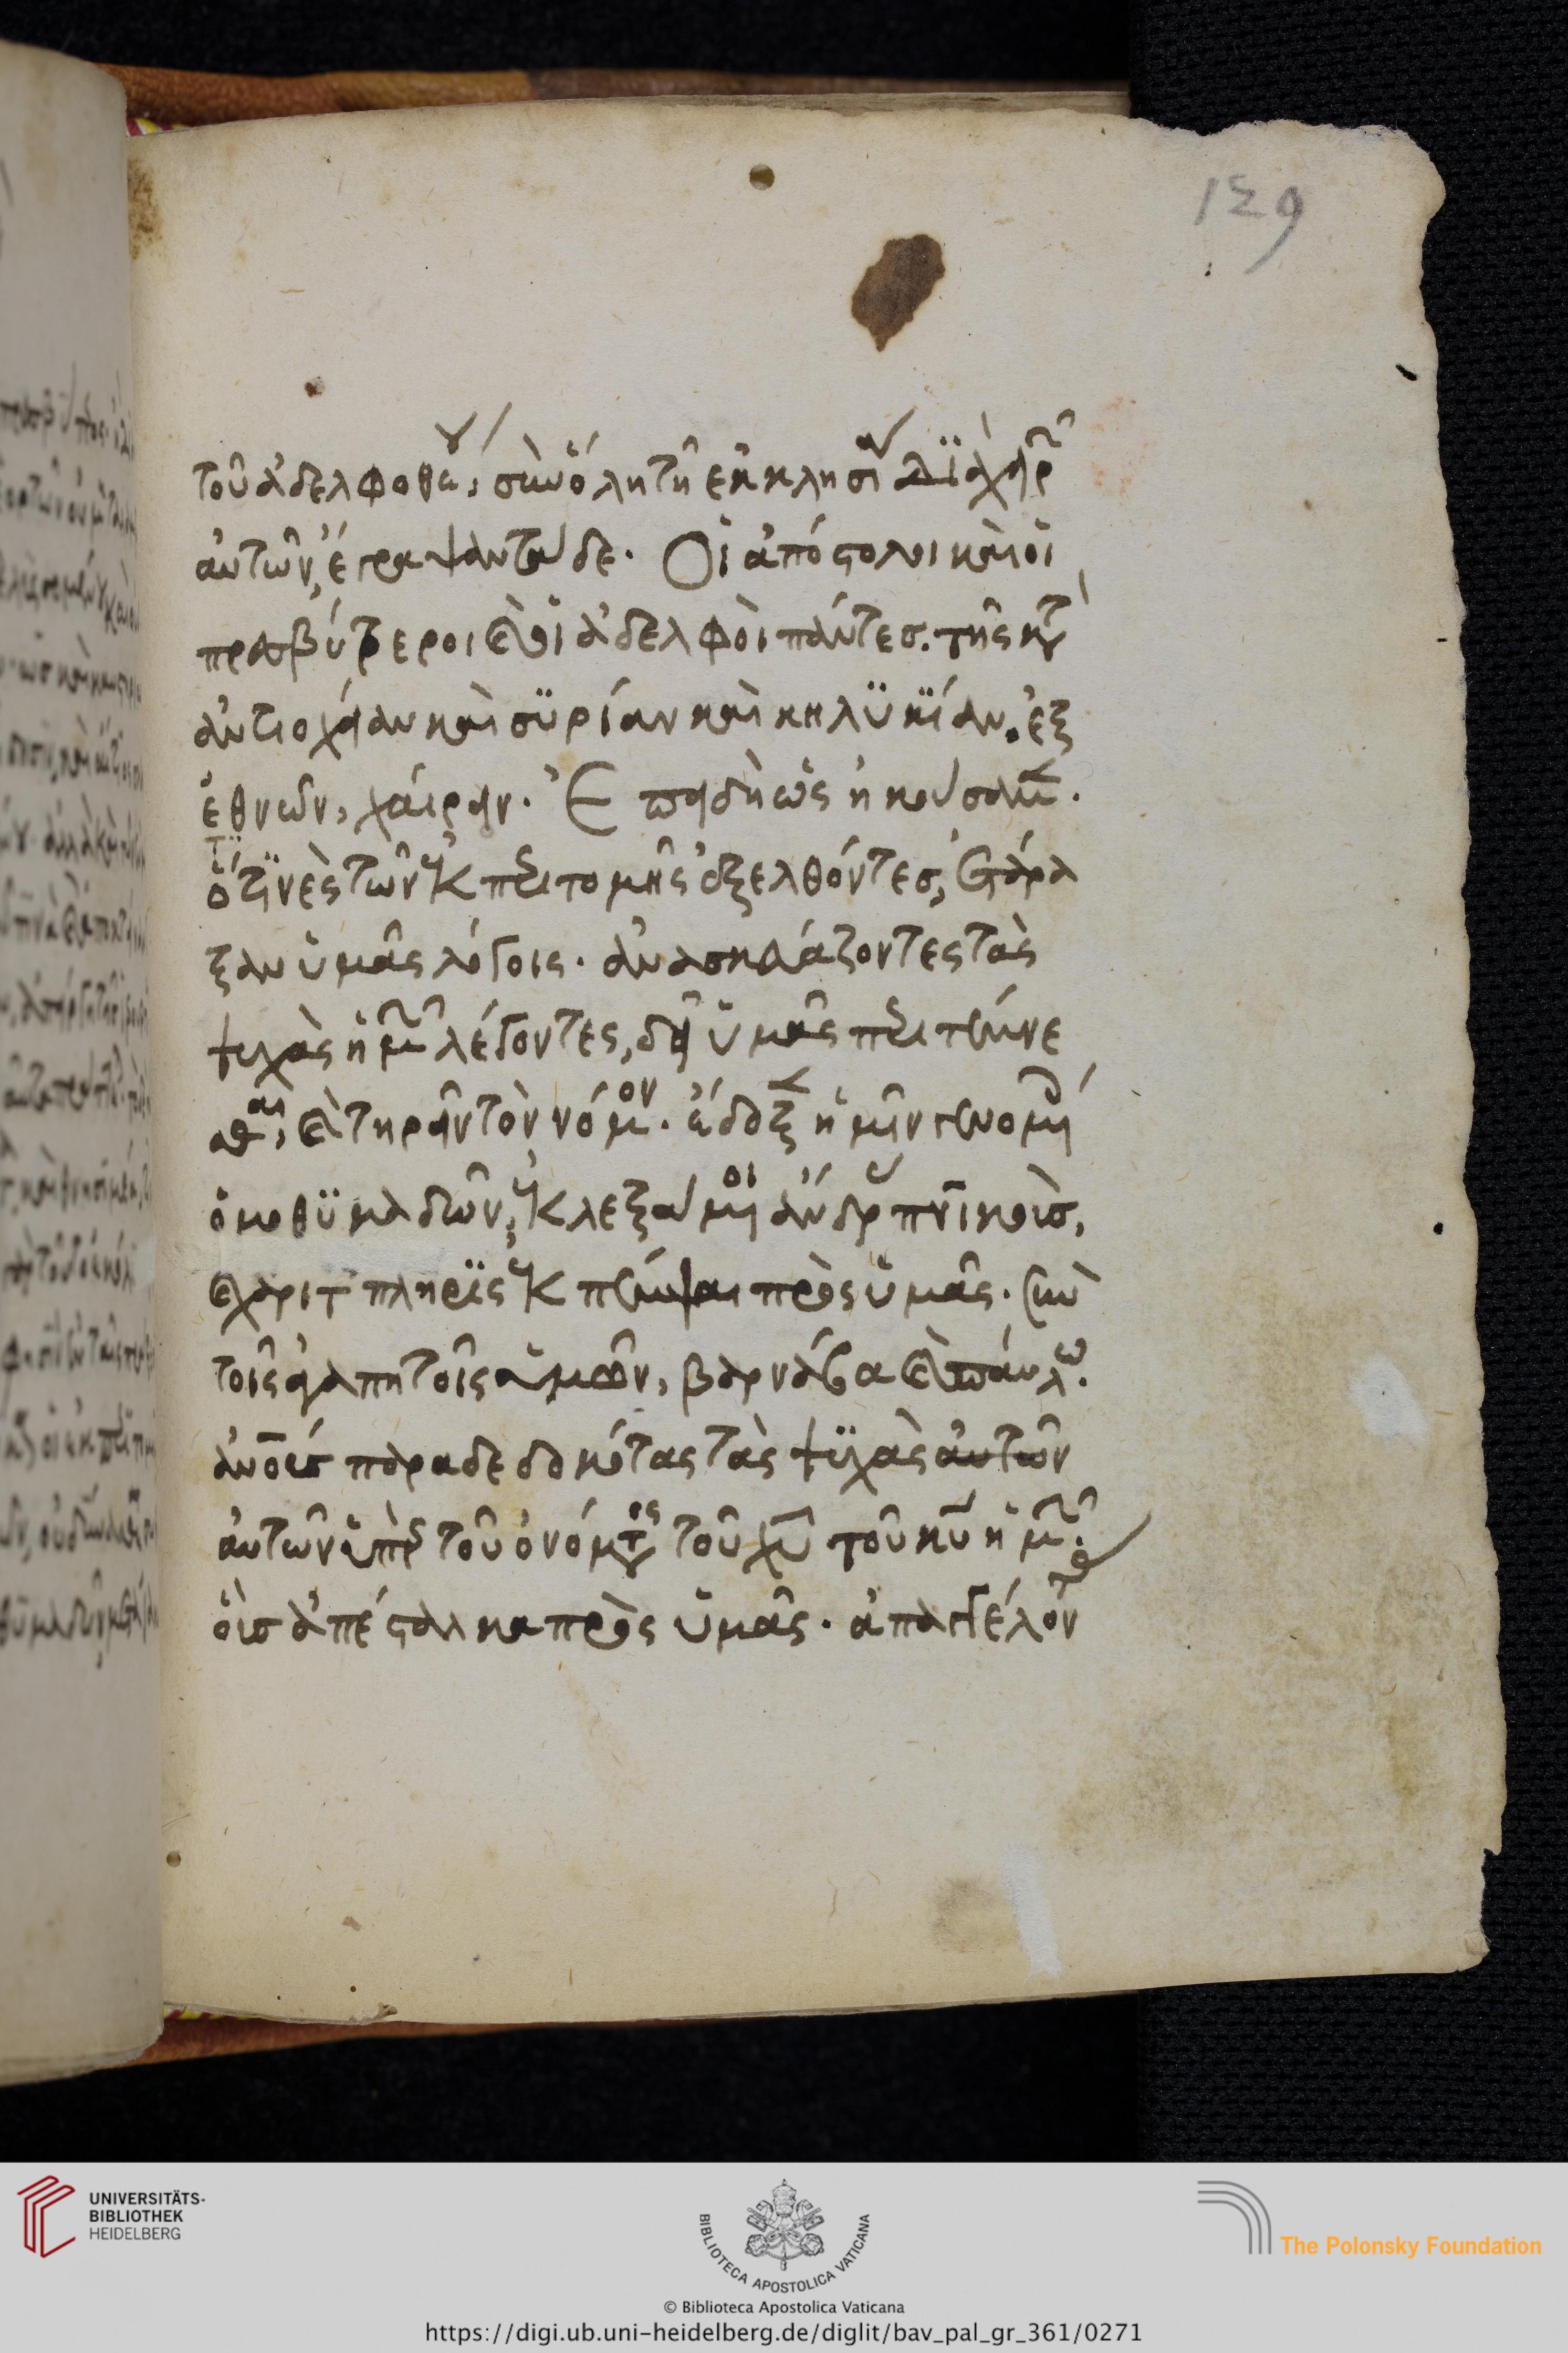 129
τοῦ ἀδελφοθέου, σὺν ὅλη τῆ ἐκκλησία διὰ χειρ
αὐτῶν, ἔγραψαν τάδε. Οἱ ἀπόστολοι καὶ οἱ
πρεσβύτεροι καὶ οἱ ἀδελφοὶ πάντες. τῆς κατὰ
ἀντιοχείαν καὶ σϋρίαν καὶ κηλϋκίαν. ἐξ
ἐθνῶν, χαίρειν. Ἐπειδὴ ὡς ἠκούσαμεν.
ὅτϊνὲς τῶν ἐκ περιτομῆς ἐξελθόντες, ἐτάρα
ξαν ὑμᾶς λόγοις. ἀνασκεβάζοντες τὰς
ψυχὰς ἡμῶν λέγοντες, δεῖ ὑμᾶς περιτέμνε
σθαι, καὶ τηρεῖν τὸν νόμον. ἔδοξεν ἡμῖν γενομέν
ὁμοθϋμαδῶν, ἐκλεξαμένοι ἄνδρ πνικοὶς,
χάριτ πληρϊς ἐκπέμψαι πρὸς ὑμᾶς. σὺν
τοῖς ἀγαπητοῖς ἡμῶν, βαρνάβα καὶ παύλω.
ἀνοις παραδεδοκότας τὰς ψϋχὰς αὐτῶν
αὐτῶν ὑπὲρ τοῦ ὀνόματος τοῦ χυ τοῦ κυ ἡμῶν.
οἳς ἀπέσταλκα πρὸς ὑμᾶς. ἀπαγγέλον
UNIVERSITÄTS-
BIBLIOTHEK
HEIDELBERG
BIBLIOTECA APOSTOLICA VATICANA
The Polonsky Foundation
© Biblioteca Apostolica Vaticana
https://digi.ub.uni-heidelberg.de/diglit/bav_pal_gr_361/0271